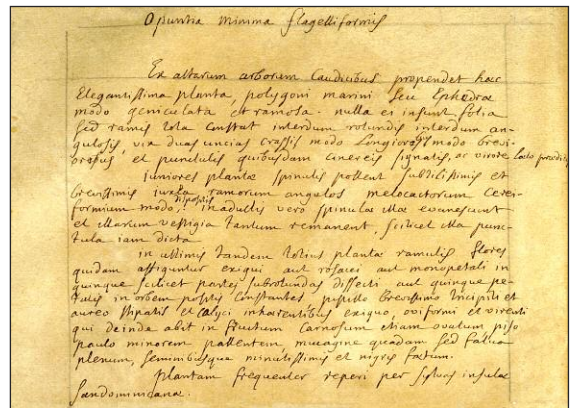 Opuntia minima flagelliformis
Ex altarum arborum Caudicibus propendet hæc
Elegantissima planta, polygoni marini seu Ephedræ
modo geniculata et ramosa. nulla ei insunt folia
sed ramis tota constat interdum rotundis interdum an-
gulosis, vix duas uncias crassis modo longioribus modo brevi-
oribus et punctulis quibusdam cinereis signatis, ac virore læto præditis
Juniores plantæ spinulis pollent subtilissimis et
brevissimis iuxta ramorum angulos melocactorum Cerei-
formium modo, dispositis in adultis vero spinulæ illæ evanescunt
et illarum vestigia tantum remanent, scilicet illa punc-
tula iam dicta
in ultimis tandem totius plantæ ramulis flores
quidam affiguntur exigui aut rosacei aut monopetali in
quinque scilicet partes subrotundas dissecti aut quinque pe-
talis in orbem positis Constantes, pistillo brevissimo
aureo stipatis et calyci inhærentibus exiguo, oviformi et virenti
qui deinde abit in fructum Carnosum etiam ovatum piso
paulo minorem pallentem, mucagine quadam sed fatua
plenum, seminibusque minutissimis et nigris fœtum.
Plantam frequenter reperi per sylvas insulæ
Sandominicanæ.